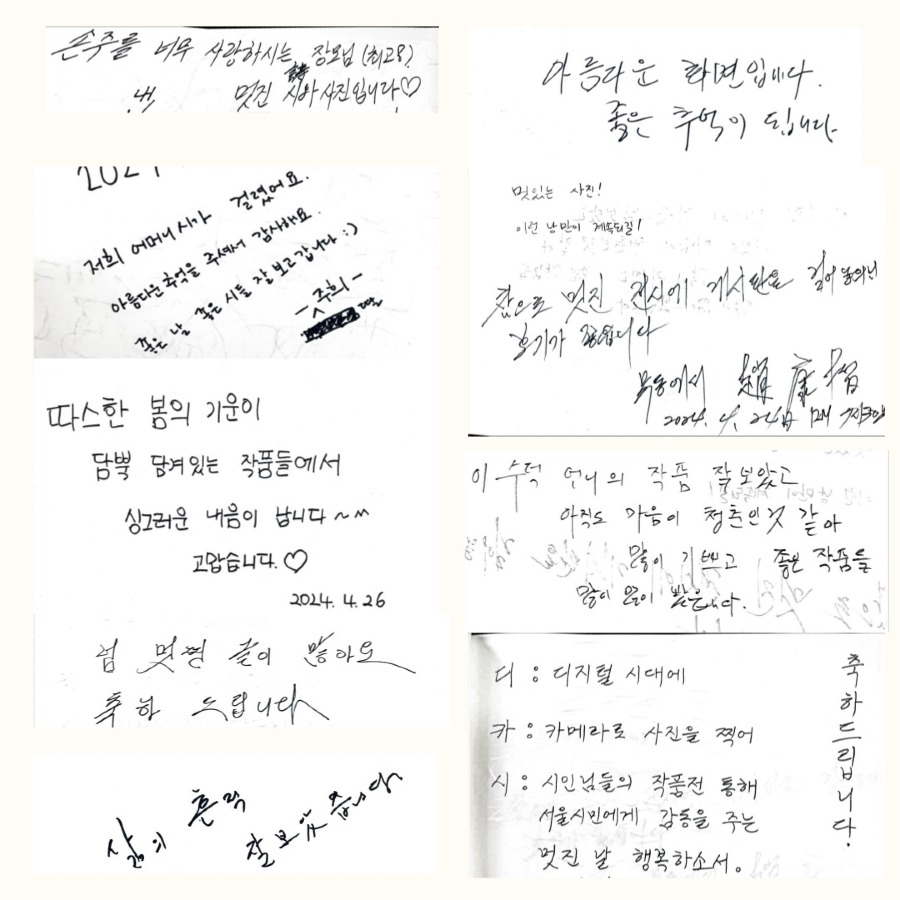 손주를 너무 사랑하시는 장모님 (최고용)
멋진 시와 사진입니다♡
2024
저희 어머니 시가 걸렸어요.
아름다운 추억을 주셔서 감사해요.
좋은 날 좋은 시들 잘 보고 갑니다 :)
- 주희 -
딸
따스한 봄의 기운이
담뿍 담겨있는 작품들에서
싱그러운 내음이 납니다~^^
고맙습니다.♡
2024. 4. 26
넘 멋찐 글이 많아요
축하 드립니다
삶의 흔적
잘 보았습니다
아름다운 화면입니다.
좋은 추억이 됩니다.
멋있는 사진!
이런 낭만이 계속되길!
참으로 멋진 전시에 게시판을 걸어놓으니
향기가 납니다
목동에서 趙康
2024. 4. 24日
이수적 언니의 작품 잘 보았고
아직도 마음이 청춘인것 같아
많이 기쁘고 좋은 작품들
많이 많이
디 : 디지털 시대에
카 : 카메라로 사진을 찍어
시 : 시인님들의 작품전 통해
서울시민에게 감동을 주는
멋진 날 행복하소서.
축하드립니다!